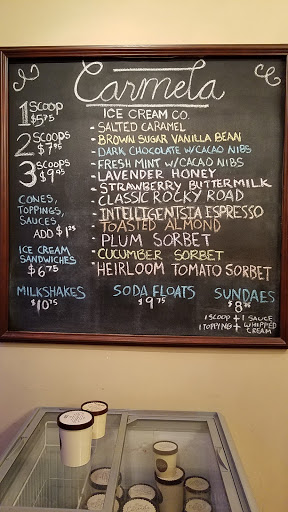 Carmela
ICE CREAM CO.
1 SCOOP
$5.75
2 SCOOPS
3 SCOOPS
CONES,
TOPPINGS,
SAUCES
ADD $1.25
ICE CREAM
SANDWICHES
$6.75
- SALTED CARAMEL
- BROWN SUGAR VANILLA BEAN
- DARK CHOCOLATE W/CACAO NIBS
- FRESH MINT W/CACAO NIBS
- LAVENDER HONEY
- STRAWBERRY BUTTERMILK
- CLASSIC ROCKY ROAD
- INTELLIGENTSIA ESPRESSO
- TOASTED ALMOND
- PLUM SORBET
- CUCUMBER SORBET
- HEIRLOOM TOMATO SORBET
MILKSHAKES
SODA FLOATS
$9.75
SUNDAES
1 SCOOP + 1 SAUCE
1 TOPPING + WHIPPED
CREAM